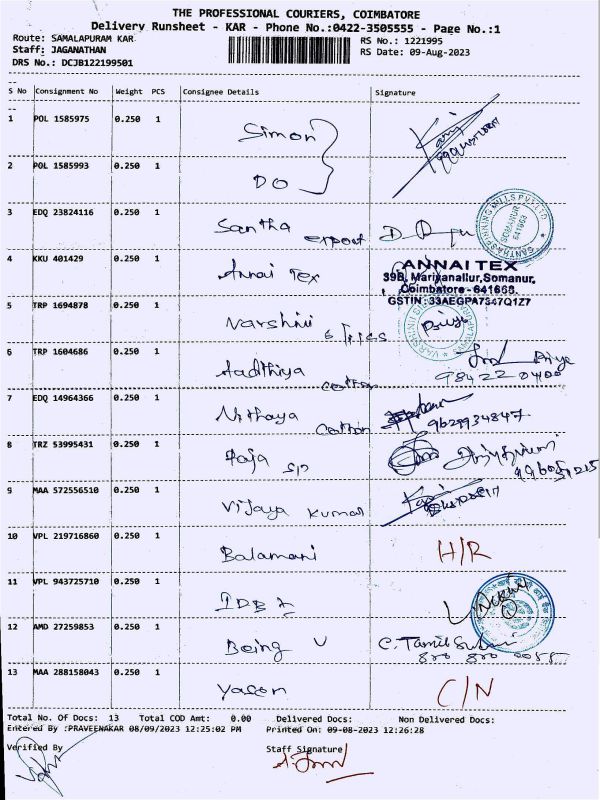 THE PROFESSIONAL COURIERS, COIMBATORE
Delivery Runsheet - KAR - Phone No:0422-3505555 - Page No.:1
Route: SAMALAPURAM KAR
Staff: JAGANATHAN
DRS No.: DCJB122199501
RS No.: 1221995
RS Date: 09-Aug-2023
S No Consignment No Weight PCS Consignee Details Signature
1 POL 1585975 0.250 1 Simon
2 POL 1585993 0.250 1 DO
3 EDQ 23824116 0.250 1 Santha export
SANTHA SPINNING MILLS PVT LTD
SOMANUR
641668
4 KKU 401429 0.250 1 Annai Tex
ANNAI TEX
39B, Mariyanallur, Somanur,
Coimbatore - 641668.
GSTIN : 33AEGPA7347Q1Z7
5 TRP 1694878 0.250 1 Varshini Priya
6 TRP 1604686 0.250 1 Aadthiya cotton Priya
98422 0400
7 EDQ 14964366 0.250 1 Nithaya cotton 9629934847
8 TRZ 53995431 0.250 1 Raja SP
9 MAA 572556510 0.250 1 Vijaya Kumar
10 VPL 219716860 0.250 1 Balamani H/R
11 VPL 943725710 0.250 1 IDBI
12 AMD 27259853 0.250 1 Being U C. Tamil
13 MAA 288158043 0.250 1 Yason C/N
Total No. Of Docs: 13 Total COD Amt: 0.00 Delivered Docs: Non Delivered Docs:
Entered By :PRAVEENAKAR 08/09/2023 12:25:02 PM Printed On: 09-08-2023 12:26:28
Verified By Staff Signature